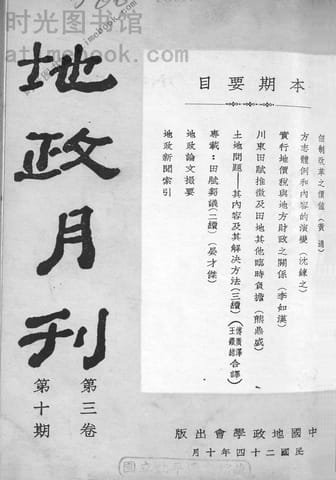 时光图书馆
atimebook.com
地政月刊
第三卷
第十期
本期要目
租制改革之價值（黃通）
方志體例和內容的演變（沈鍊之）
實行地價稅與地方財政之關係（李如漢）
川東田賦推徵及田地其他臨時負擔（熊鼎盛）
土地問題——其內容及其解決方法（三續）（傅廣澤 王鐵錚 合譯）
專載：田賦芻議（二續）（晏才傑）
地政論文撮要
地政新聞索引
中國地政學會出版
民國二十四年十月